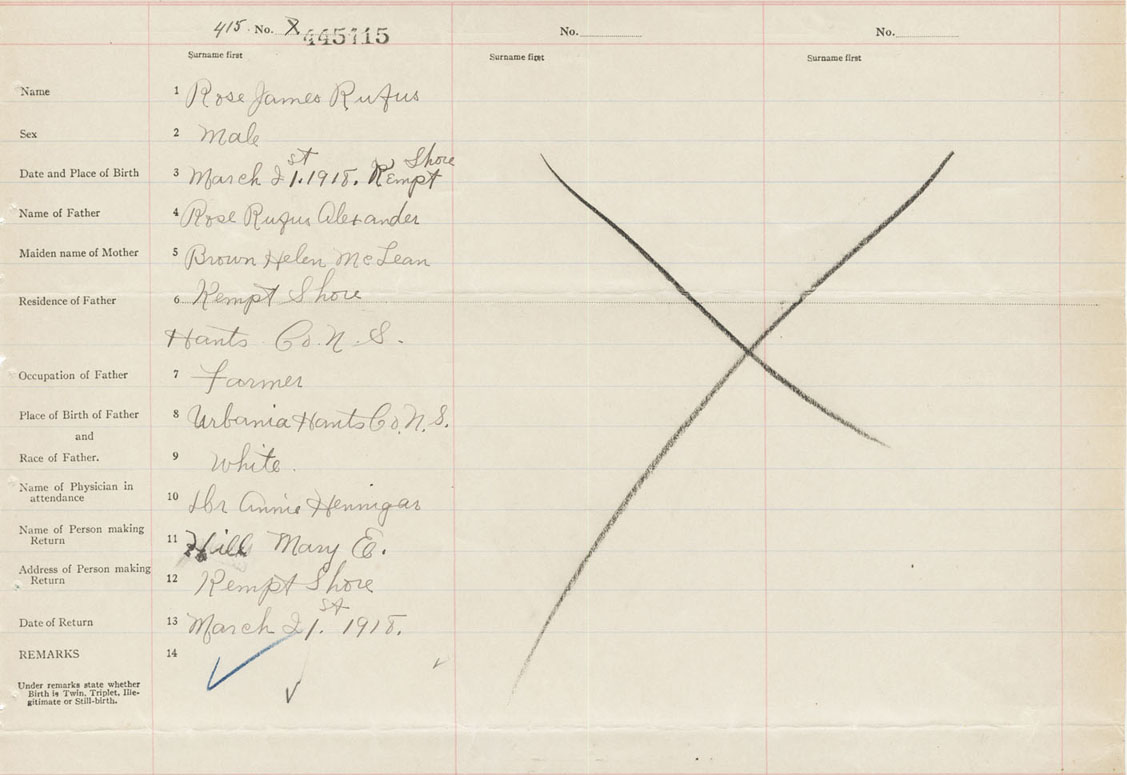 415 No. X 445115 No. No.
Surname first Surname first Surname first
Name 1 Rose James Rufus
Sex 2 Male
Date and Place of Birth 3 March 21st. 1918. Kempt Shore
Name of Father 4 Rose Rufus Alexander
Maiden name of Mother 5 Brown Helen McLean
Residence of Father 6 Kempt Shore
Hants Co. N. S.
Occupation of Father 7 Farmer
Place of Birth of Father 8 Urbania Hants Co. N. S.
and
Race of Father. 9 White.
Name of Physician in
attendance 10 Dr Annie Hennigar
Name of Person making
Return 11 Hill Mary E.
Address of Person making
Return 12 Kempt Shore
Date of Return 13 March 21st. 1918.
REMARKS 14
Under remarks state whether
Birth is Twin, Triplet, Ille-
gitimate or Still-birth.